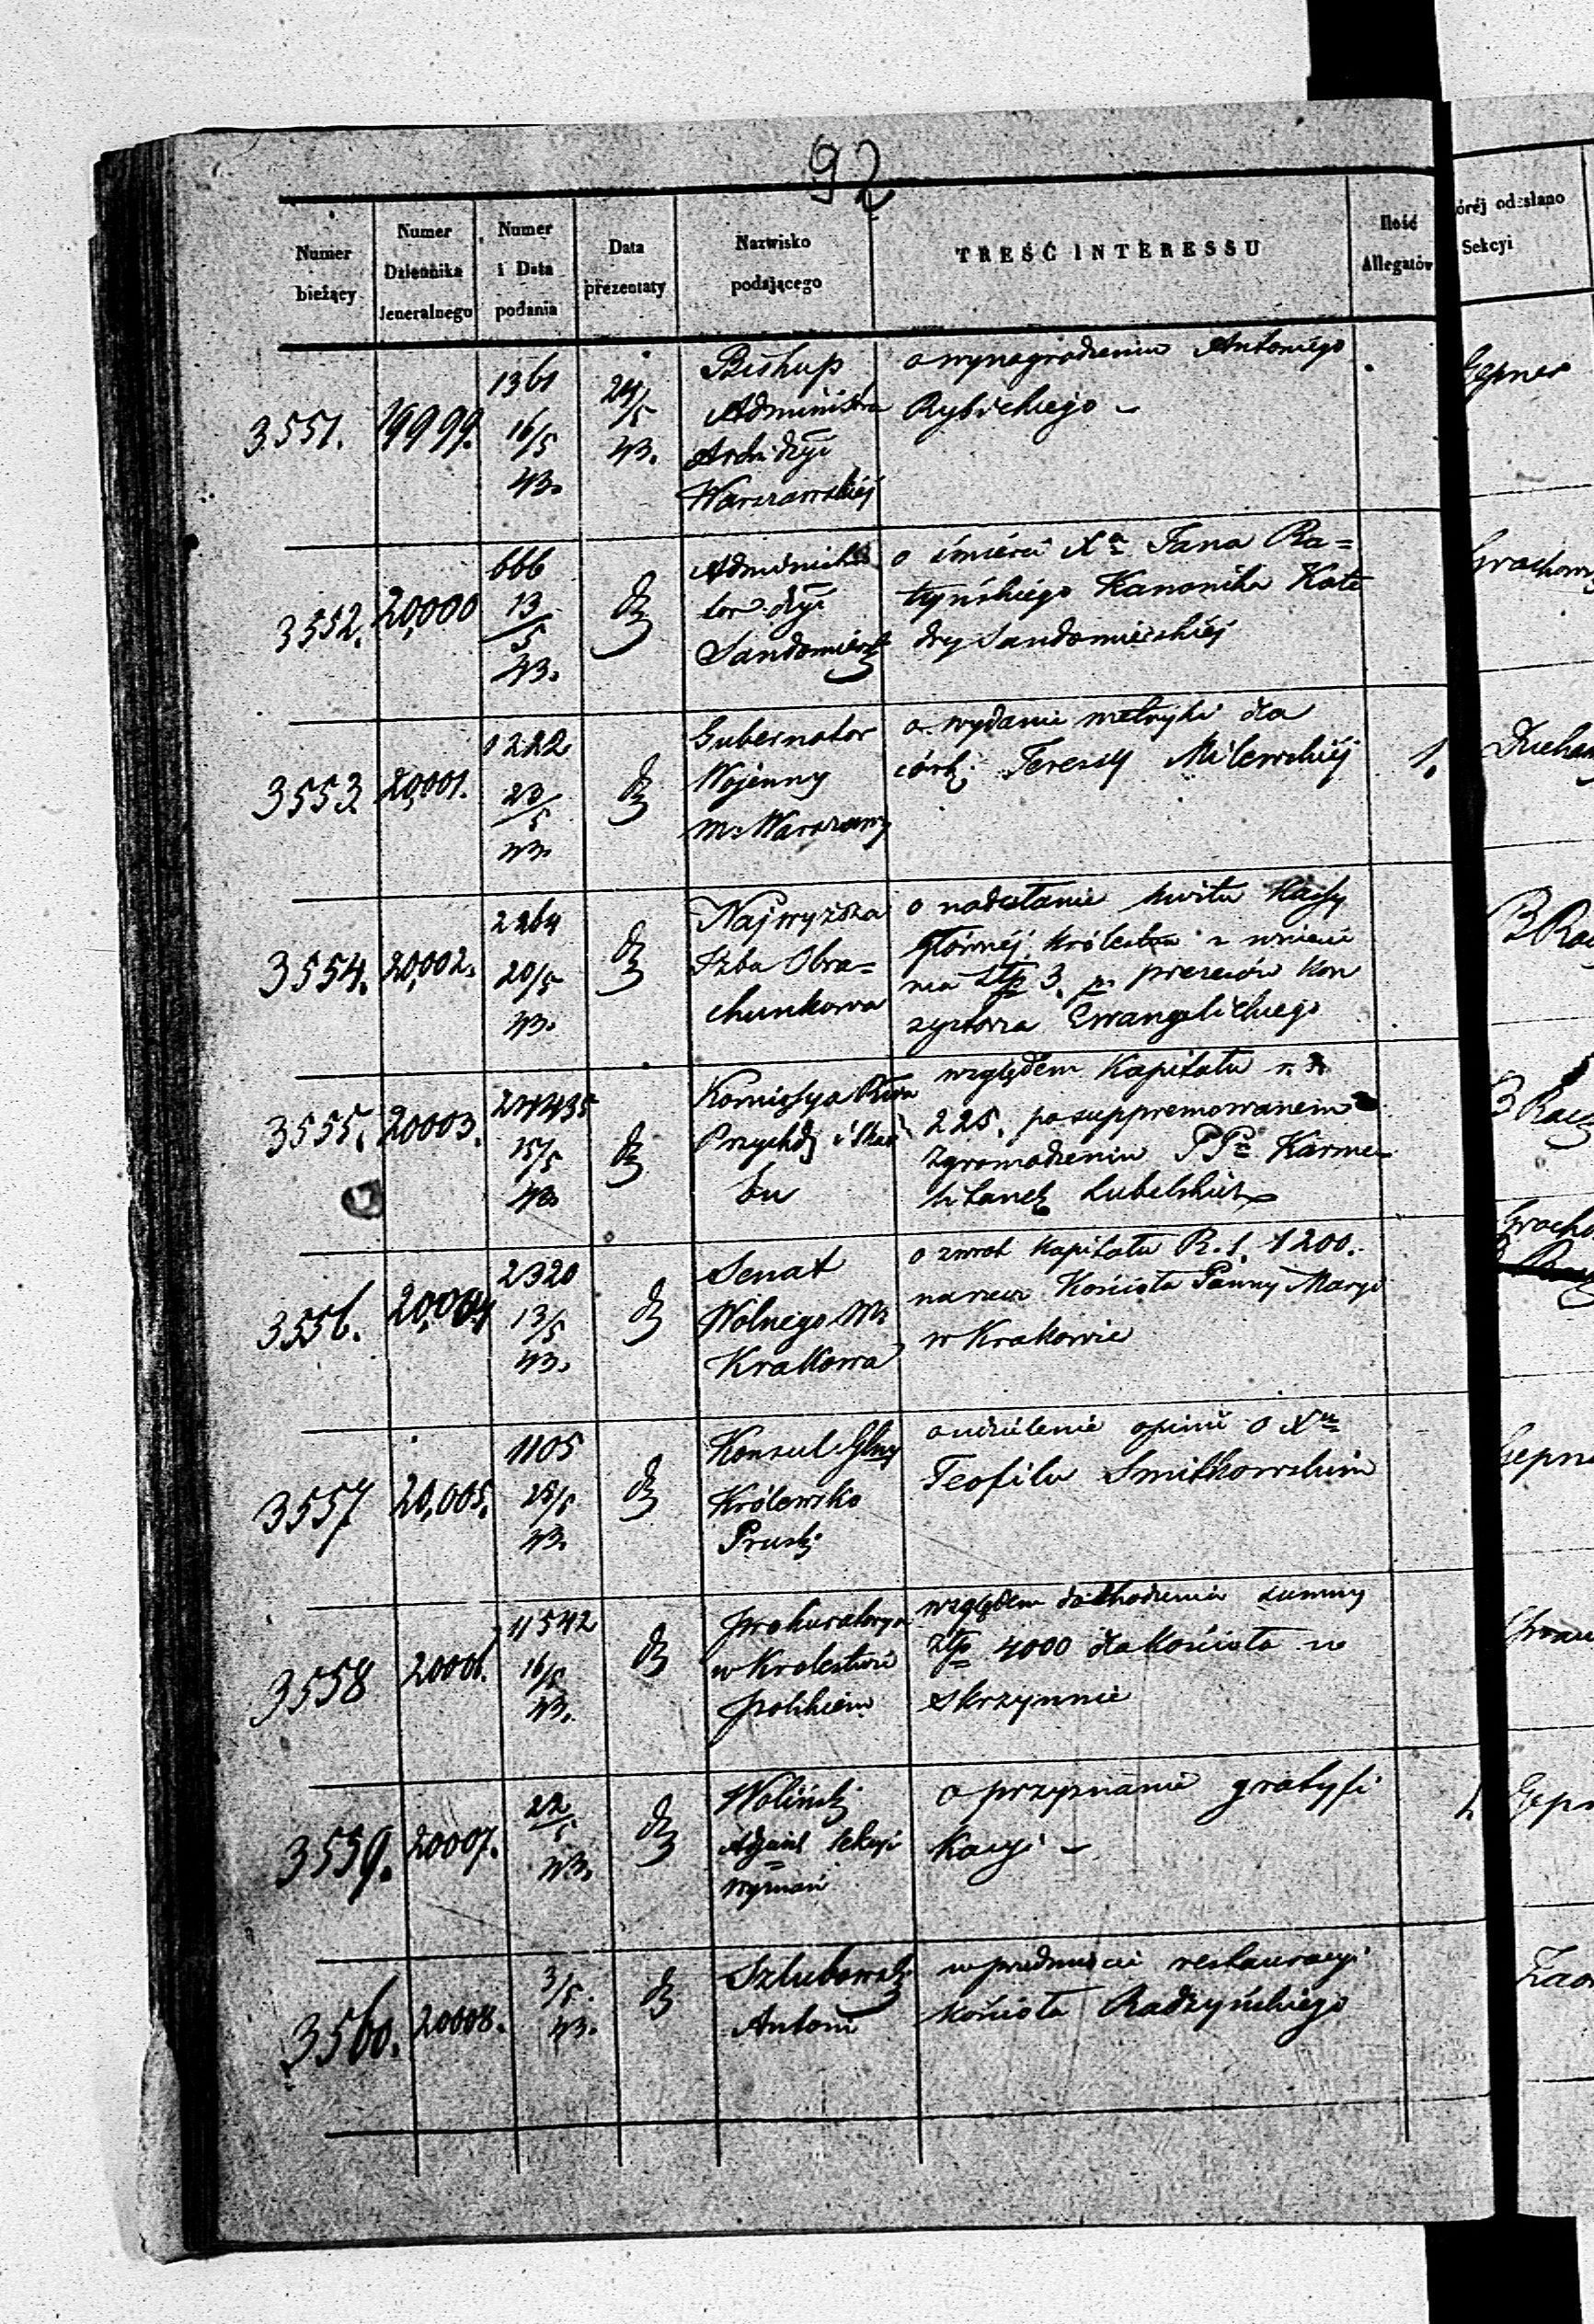 92
Numer bieżący
Numer Dziennika Jeneralnego
Numer i Data podania
Data prezentaty
Nazwisko podającego
TREŚĆ INTERESSU
Ilość Allegatów
órej odesłano Sekcyi
3551. 19999. 1361 16/5 43. 24/5 43.
Biskup
Administra
Archi dyi
Warszawskiej
o wynagrodzeniu Antoniego
Rybickiego –
Gepner
3552. 20,000 666 13/5 43.
Administra
tor dyi
Sandomiersk
o śmierci Xa Jana Ra=
tyńskiego Kanonika Kate
dry Sandomierskiej
3553 20,001. 1222 23/5 43.
Gubernator
Wojenny
M. Warszawy
o wydanie metryki dla
córki Teressy Milewskiej
1.
3554. 20,002. 2264 20/5 43.
Najwyższa
Izba Obra=
chunkowa
o nadesłanie kwitu Kassy
Głównej Królestwa z wniesie
nia Złp 3. p. prezesów Kon
systorza Ewangelickiego
3555. 20003. 24435 15/5 43.
Kommissya Rzdwa
Przychdj i Skar
bu
względem Kapitału
225. po suppremowanem
Zgromadzeniu PP. Karme
litanek Lubelskich
3556. 20,004 2320 13/5 43.
Senat
Wolnego M.
Krakowa
o zwrot Kapitału R. s. 1200.
na rzecz Kościoła Panny Maryi
w Krakowie
3557 20,005. 1105 23/5 43.
Konsul Glny
Królewsko
Pruski
o udzielenie opinii o Xu
Teofilu Smitkowskim
3558 20006. 11542 16/5 43.
Prokuratorya
w Krolestwie
Polskiem
względem dochodzenia summy
złp 4000 dla Kościoła w
Skrzynnie
3559. 20007. 22/5 43.
Woliński
Adjunkt Sekcyi
Wyznań
o przyznanie gratyfi
kacyi –
1.
3560. 20008. 3/5. 43.
Szlubowski
Antoni
w przedmiocie restauracyi
Kościoła Radzyńskiego